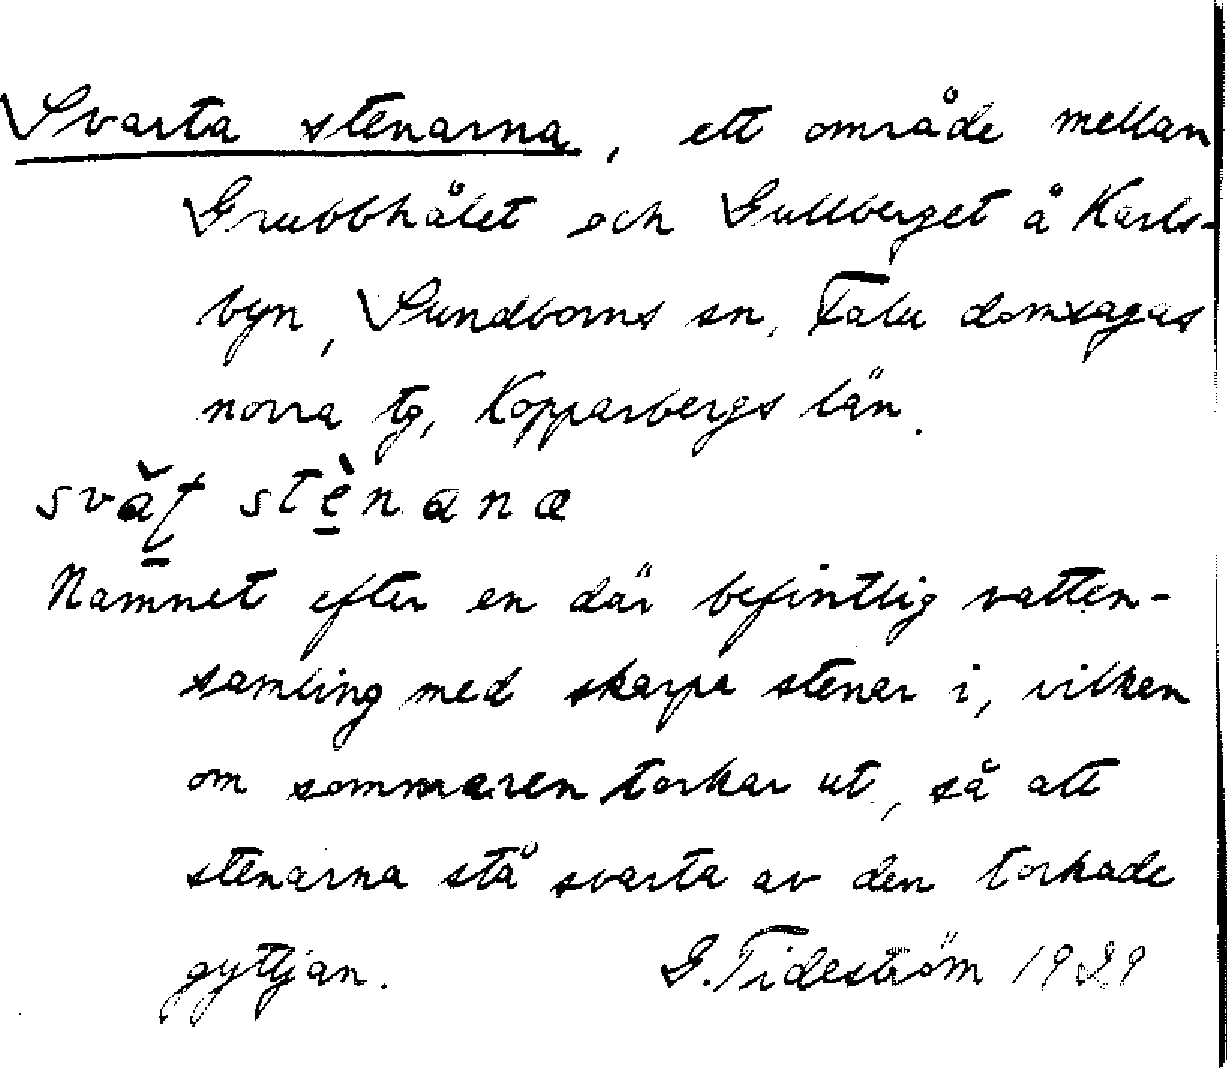 Svarta stenarna, ett område mellan
Grubbhålet och Gullberget å Karls-
byn, Sundborns sn, Falu domsagas
norra tg, Kopparbergs län.
stènana
Namnet efter en där befintlig vatten-
samling med skarpa stenar i, vilken
om sommaren torkar ut, så att
stenarna stå svarta av den torkade
gyttjan. G. Tideström 1929